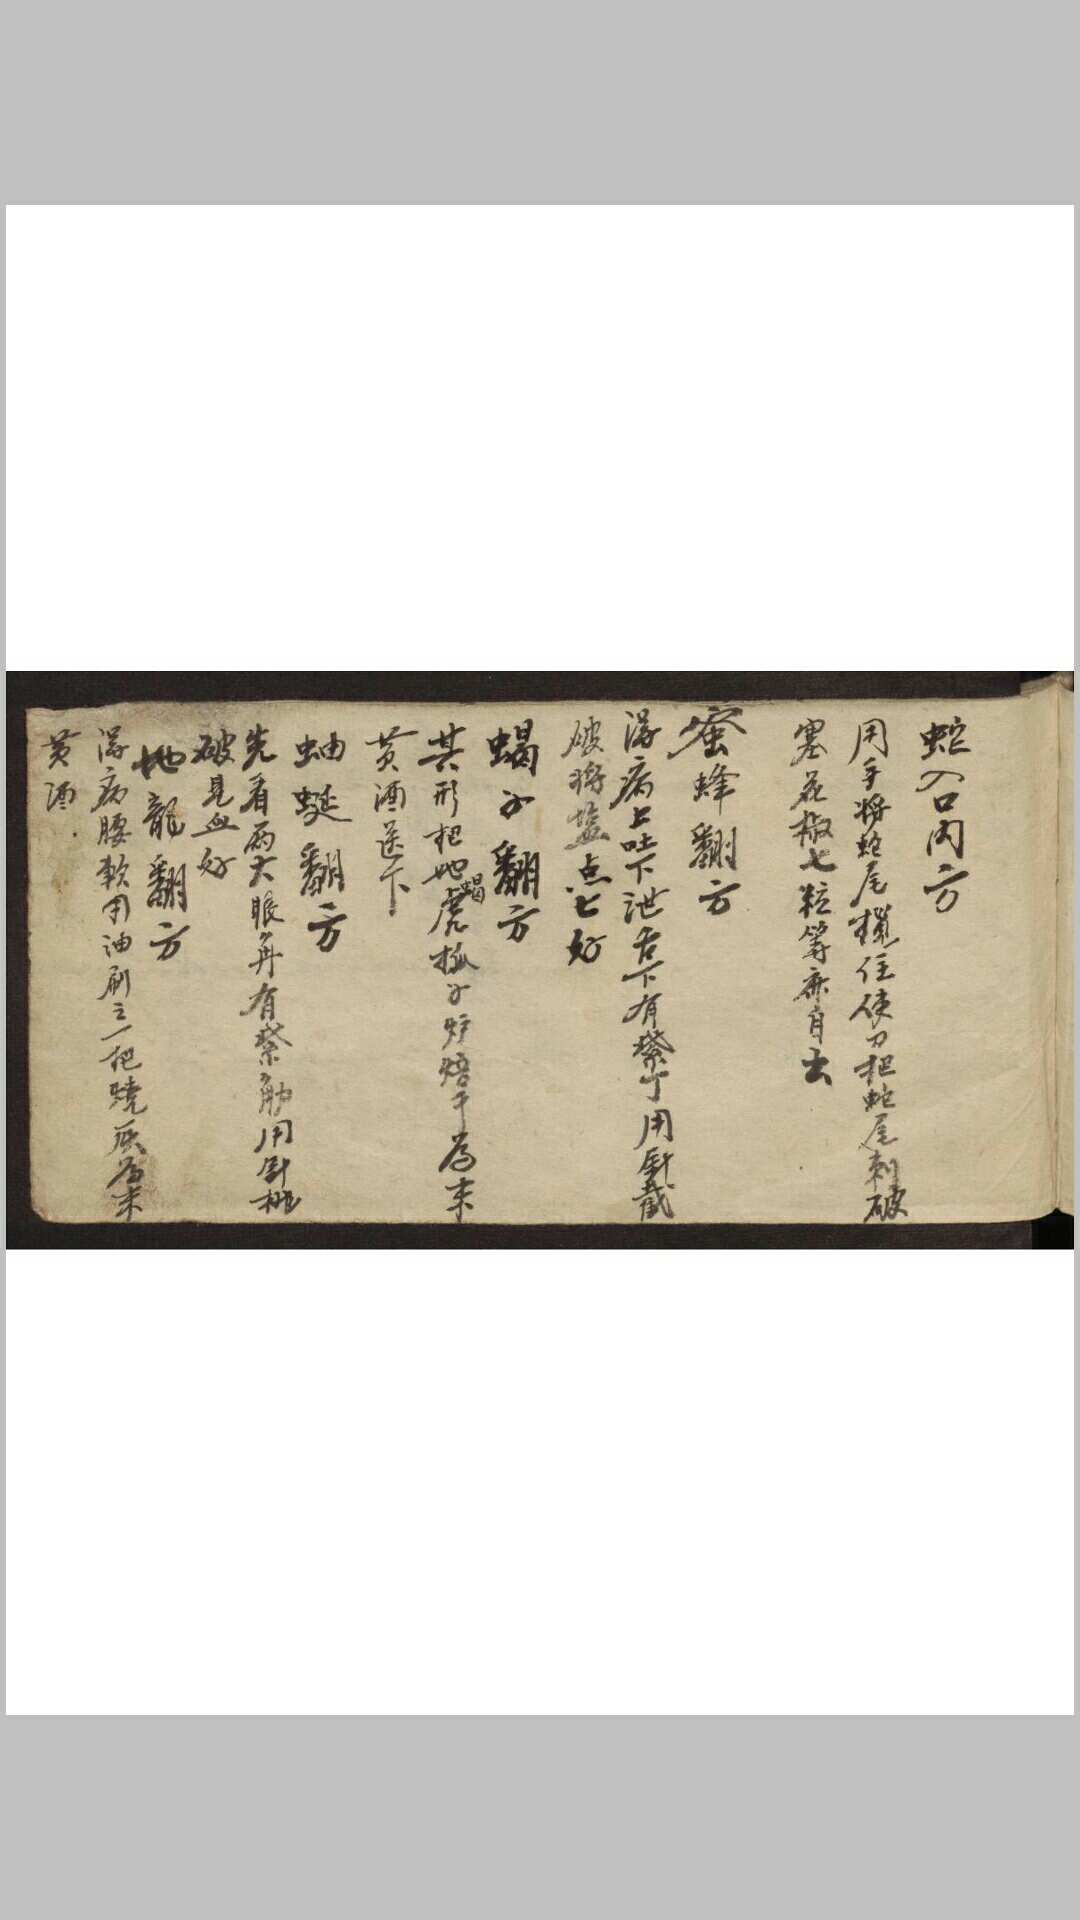 蛇入口内方
用手将蛇尾住使刀把蛇尾刺破
塞花椒七粒等亦自出
蜜蜂翻方
得病上吐下泄舌下有紫丁用針截
破将盐点七好
蝎子翻方
其形把地蝎虎抓子炉焙干為末
黄酒送下
蚰蜒翻方
先看两大眼角有紫筋用針挑
破見血好
地龍翻方
得病腰軟用油刷之一把燒灰為末
黄酒